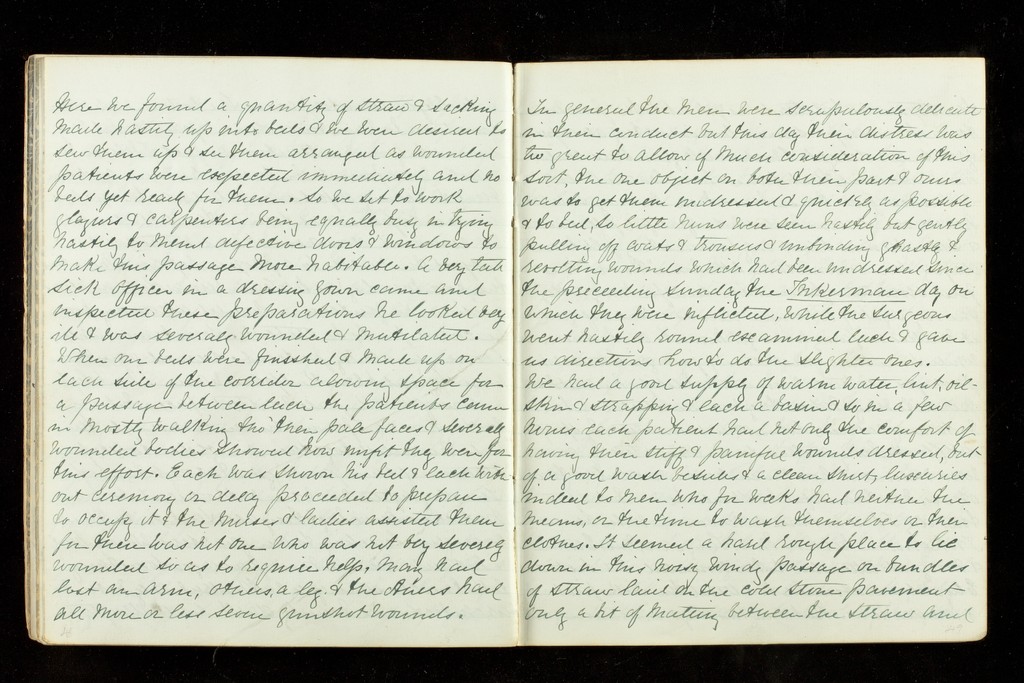 Here we found a quantity of straw & sacking
made hastily up into beds & we were desired to
sew them up & see them arranged as wounded
patients were expected immediately and no
beds yet ready for them. So we set to work
glazers & carpenters being equally busy in trying
hastily to mend defective doors & windows to
make this passage more habitable. A very tall
sick officer in a dressing gown came and
inspected these preparations he looked very
ill & was severely wounded & mutilated.
When our beds were finished & made up on
each side of the corridor allowing space for
a passage between each the patients came
in mostly walking tho' their pale faces & severely
wounded bodies showed how unfit they were for
this effort. Each was shown his bed & each with
out ceremony or delay proceeded to prepare
to occupy it & the nurses & ladies assisted them
for there was not one who was not very severely
wounded so as to require help. Many had
lost an arm, others a leg & the others had
all more or less severe gunshot wounds.
In general the men were scrupulously delicate
in their conduct but this day their distress was
too great to allow of much consideration of this
sort, the one object on both their part & ours
was to get them undressed & quickly as possible
& to bed, so little nuns were seen hastily but gently
pulling off coats & trousers & unbinding ghastly &
revolting wounds which had been undressed since
the preceeding Sunday the Inkerman day on
which they were inflicted, while the surgeons
went hastily round examined each & gave
us directions how to do the slighter ones.
We had a good supply of warm water, lint, oil-
skin & strapping & each a basin & so in a few
hours each patient had not only the comfort of
having their stiff & painful wounds dressed, but
of a good wash besides & a clean shirt, luxuries
indeed to men who for weeks had neither the
means, or the time to wash themselves or their
clothes. It seemed a hard rough place to lie
down in this noisy windy passage on bundles
of straw laid on the cold stone pavement
only a bit of matting between the straw and